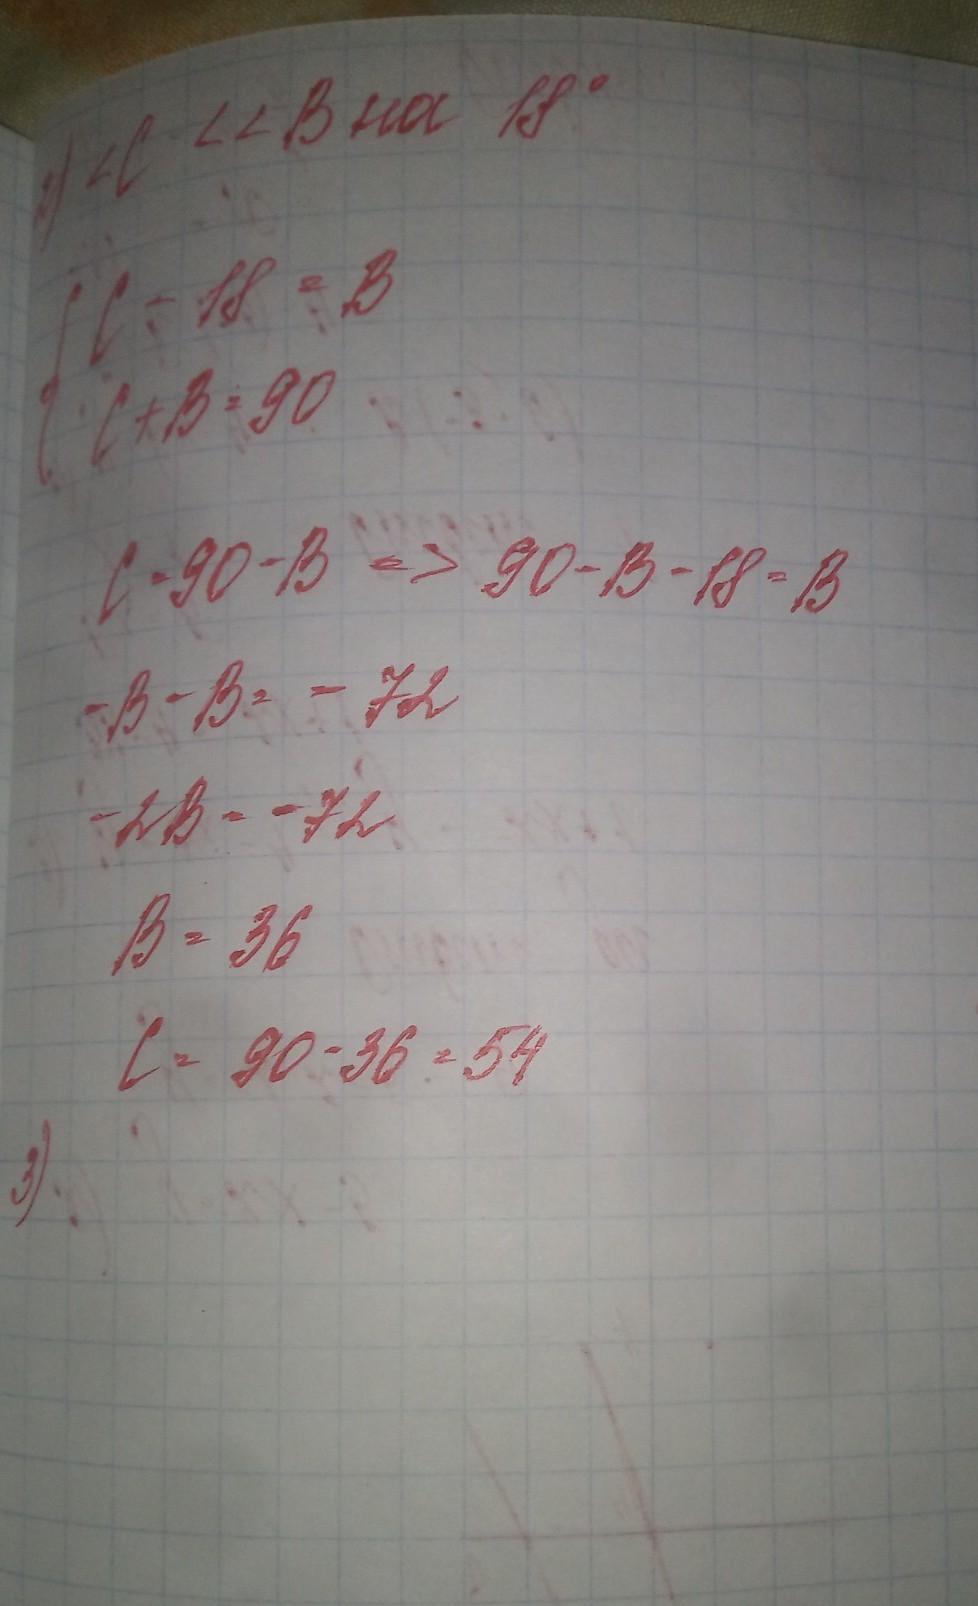 2) <C < <B на 18°
C - 18 = B
C + B = 90
C = 90 - B => 90 - B - 18 = B
-B - B = -72
-2B = -72
B = 36
C = 90 - 36 = 54
3)